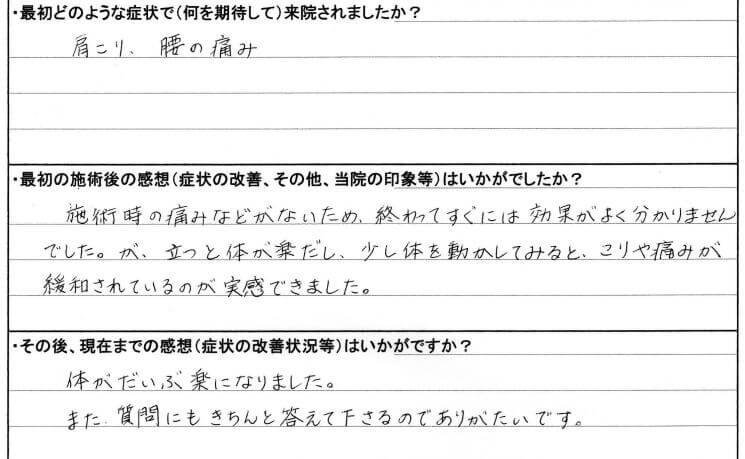 ・最初どのような症状で(何を期待して)来院されましたか？
肩こり、腰の痛み
・最初の施術後の感想(症状の改善、その他、当院の印象等)はいかがでしたか？
施術時の痛みなどがないため、終わってすぐには効果がよく分かりません
でした。が、立つと体が楽だし、少し体を動かしてみると、こりや痛みが
緩和されているのが実感できました。
・その後、現在までの感想(症状の改善状況等)はいかがですか？
体がだいぶ楽になりました。
また、質問にもきちんと答えて下さるのでありがたいです。